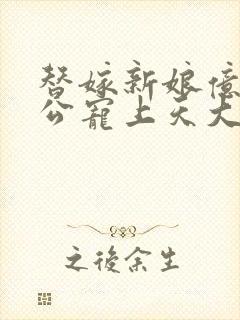 替嫁新娘億
公寵上天大
之後余生